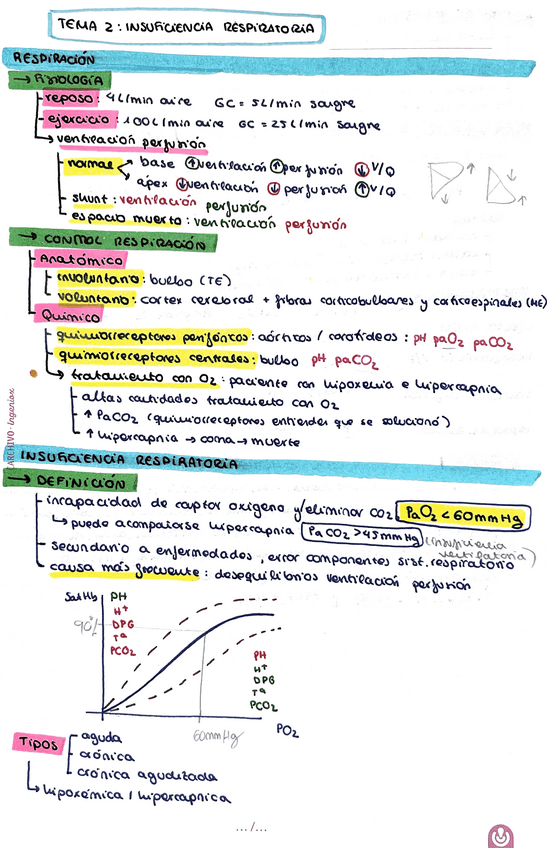 TEMA 2: INSUFICIENCIA RESPIRATORIA
RESPIRACIÓN
→ FISIOLOGÍA
reposo: 4L/min aire GC = 5L/min sangre
ejercicio: 100L/min aire GC = 25L/min sangre
↳ ventilación perfusión
normal base ↑ventilación ↑perfusión ↓V/Q
ápex ↓ventilación ↓perfusión ↑V/Q
shunt: ventilación perfusión
espacio muerto: ventilación perfusión
→ CONTROL RESPIRACIÓN
Anatómico
involuntario: bulbo (TE)
voluntario: cortex cerebral + fibras corticobulbares y corticoespinales (ME)
Químico
quimiorreceptores periféricos: aórticos / carotídeos: pH paO2 paCO2
quimiorreceptores centrales: bulbo pH paCO2
→ tratamiento con O2: paciente con hipoxemia e hipercapnia
altas cantidades tratamiento con O2
↑ PaCO2 (quimiorreceptores entiende que se solucionó)
↑ hipercapnia → coma → muerte
INSUFICIENCIA RESPIRATORIA
→ DEFINICIÓN
incapacidad de captar oxígeno y/eliminar CO2 PaO2 < 60mmHg
↳ puede acompañarse hipercapnia PaCO2 > 45mmHg (insuficiencia ventilatoria)
secundario a enfermedades, error componentes sist. respiratorio
causa más frecuente: desequilibrios ventilación perfusión
Sat Hb
90%
PH
H+
DPG
Tª
PCO2
PH
H+
DPG
Tª
PCO2
60mmHg
PO2
Tipos
aguda
crónica
crónica agudizada
↳ hipoxémica / hipercapnica
.../...